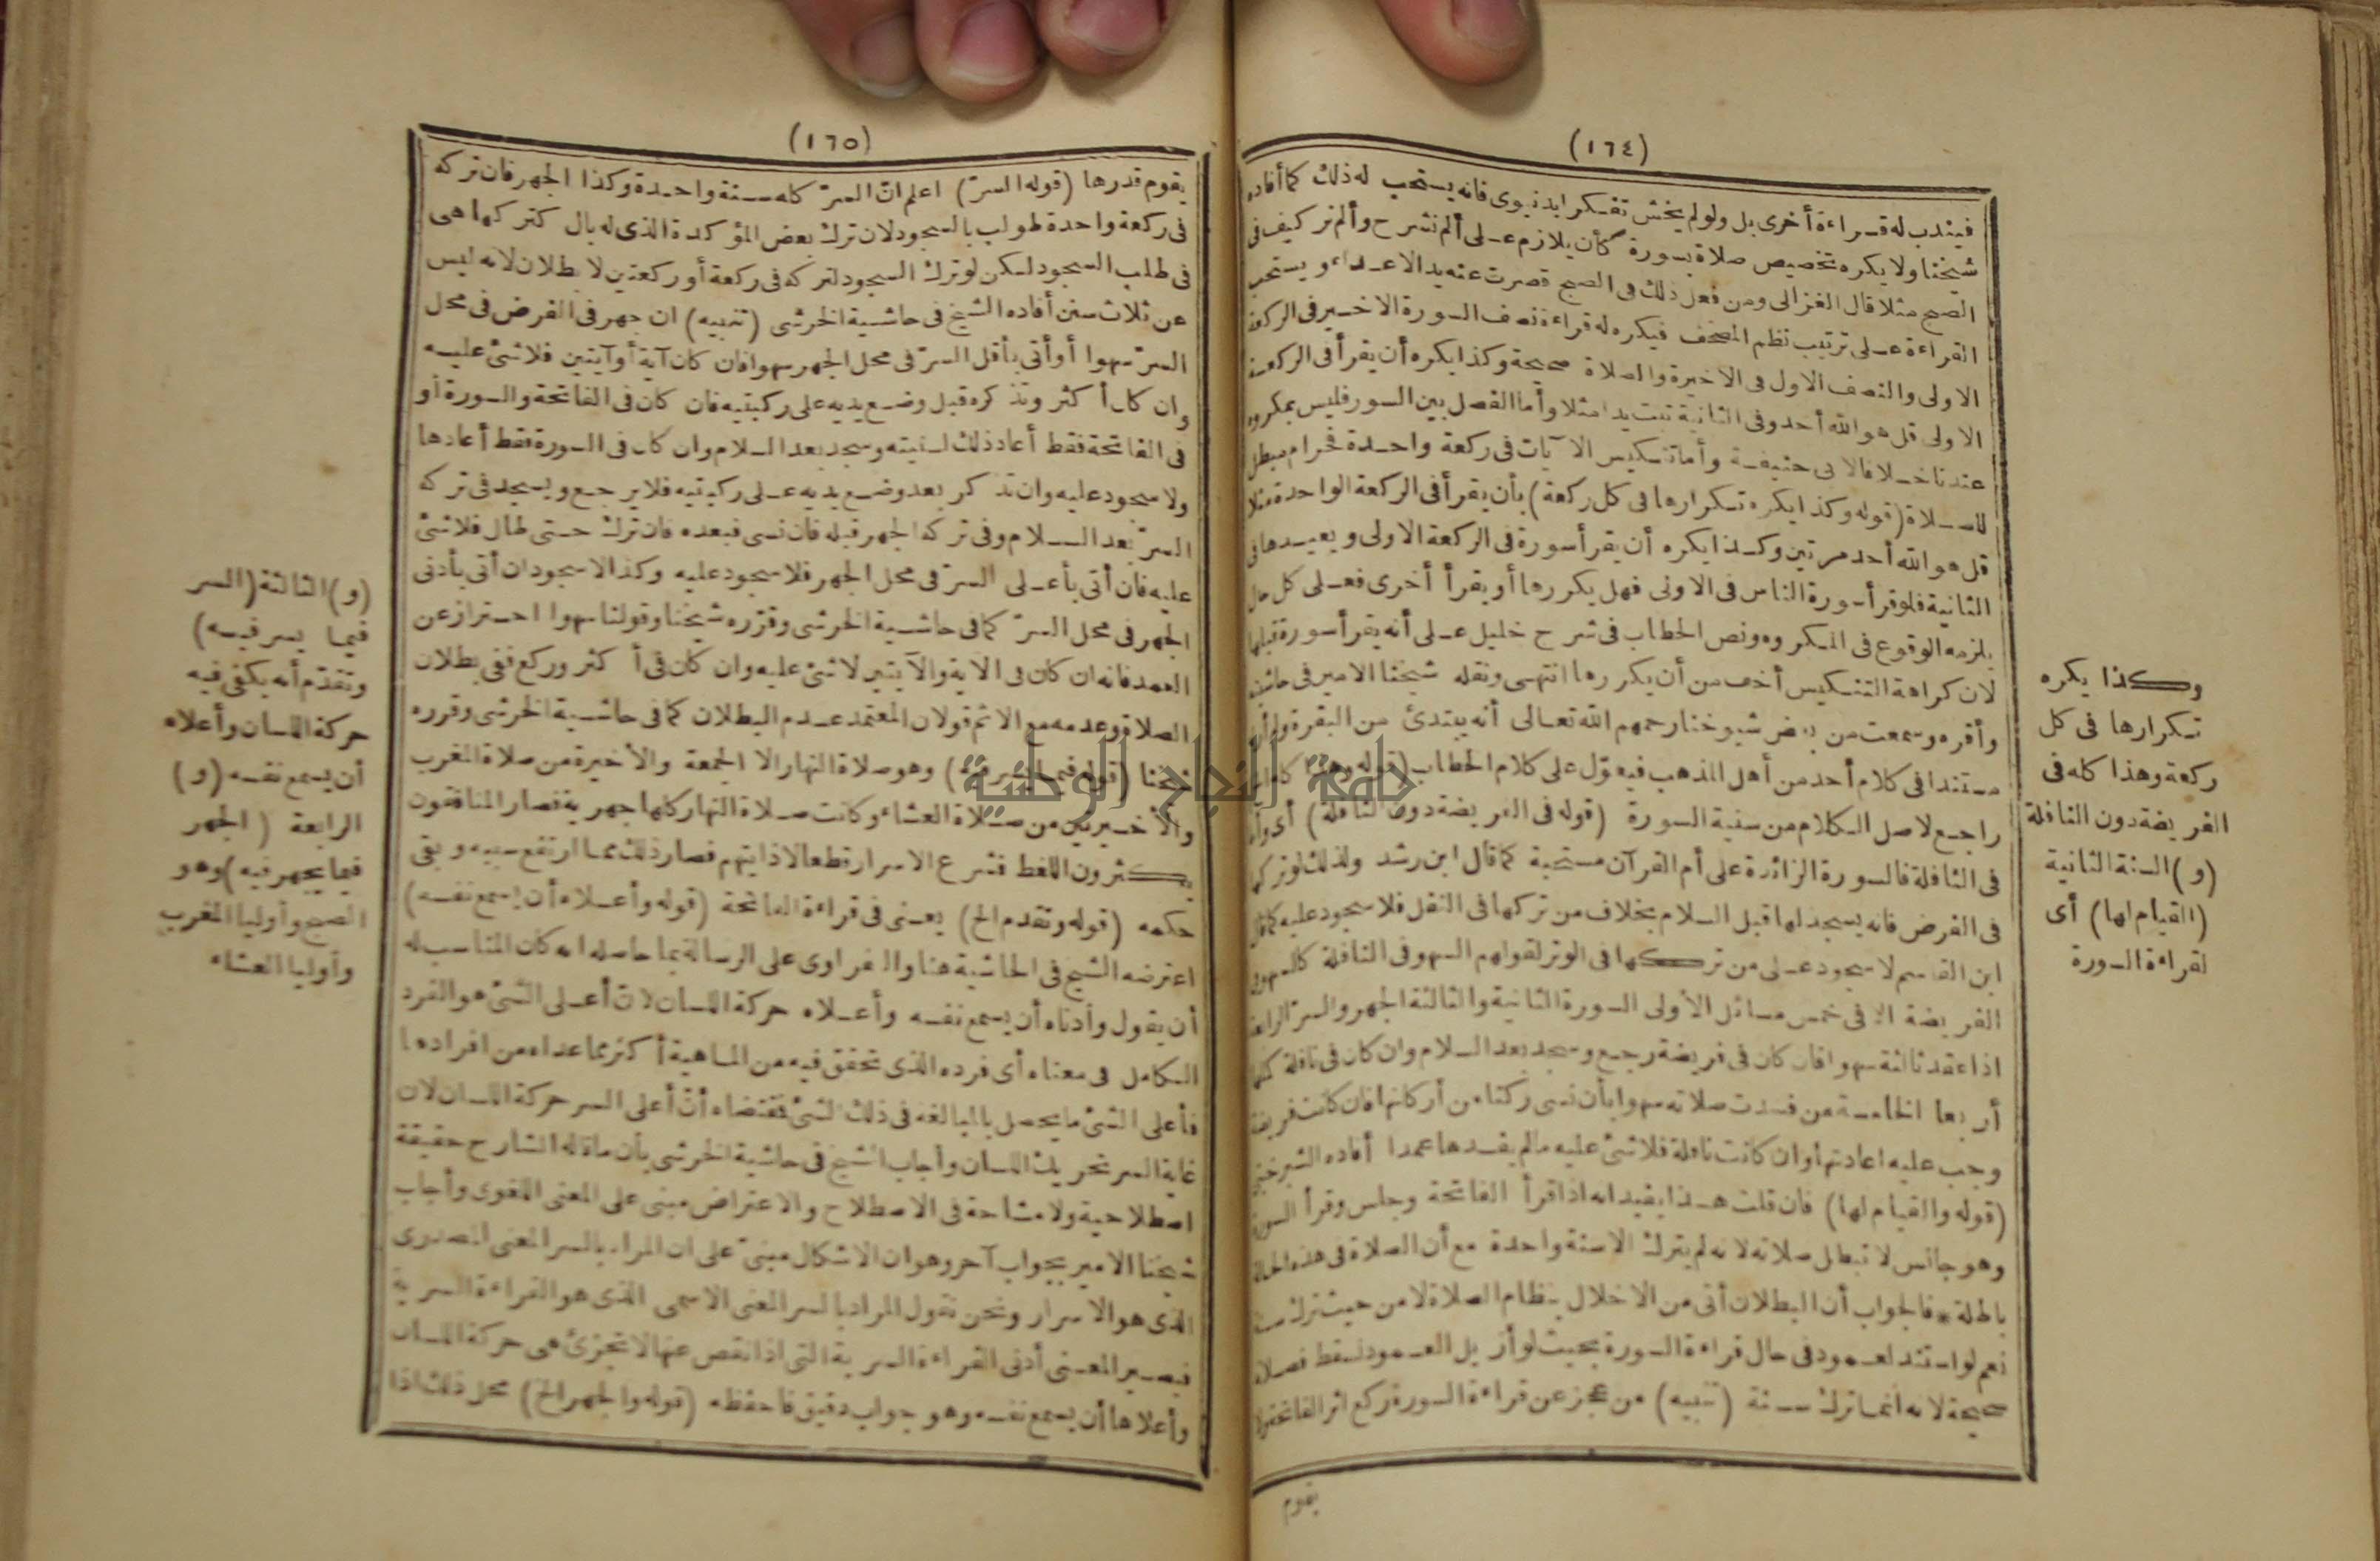 (١٦٤)
فيندب له قراءة أخرى بل ولو لم يخش تفكرا بدنيوى فانه يستحب له ذلك كما أفاده
شيخنا ولا يكره تخصيص صلاة بسورة كأن يلازم على ألم نشرح وألم تر كيف فى
الصبح مثلا قال الغزالى ومن فعل ذلك فى الصبح قصرت عنه يد الاعداء ويستحب
القراءة على ترتيب نظم المصحف فيكره له قراءة نصف السورة الاخير فى الركعة
الاولى والنصف الاول فى الاخيرة والصلاة صحيحة وكذا يكره أن يقرأ فى الركعة
الاولى قل هو الله أحد وفى الثانية تبت يدا مثلا وأما الفصل بين السور فليس بمكروه
عندنا خلافا لابى حنيفة وأما تنكيس الآيات فى ركعة واحدة فحرام مبطل
للصلاة (قوله وكذا يكره تكرارها فى كل ركعة) بأن يقرأ فى الركعة الواحدة مثلا
قل هو الله أحد مرتين وكذا يكره أن يقرأ سورة فى الركعة الاولى ويعيدها فى
الثانية فلو قرأ سورة الناس فى الاولى فهل يكررها أو يقرأ أخرى فعلى كل حال
يلزمه الوقوع فى المكروه ونص الحطاب فى شرح خليل على أنه يقرأ سورة قبلها
لان كراهة التنكيس أخف من أن يكررها انتهى ونقله شيخنا الامير فى حاشيته
وأقره وسمعت من بعض شيوخنا رحمهم الله تعالى أنه يبتدئ من البقرة ولم أر
مستندا فى كلام أحد من أهل المذهب فيعوّل على كلام الحطاب (قوله وهذا كله)
راجع لاصل الكلام من سنية السورة (قوله فى الفريضة دون النافلة) أى وأما
فى النافلة فالسورة الزائدة على أم القرآن مستحبة كما قال ابن رشد ولذلك لو تركها
فى الفرض فانه يسجد لها قبل السلام بخلاف من تركها فى النفل فلا سجود عليه كما قال
ابن القاسم لا سجود على من تركها فى الوتر لقولهم السهو فى النافلة كالسهو فى
الفريضة الا فى خمس مسائل الأولى السورة الثانية والثالثة الجهر والسرّ الرابعة
اذا عقد ثالثة سهوا فان كان فى فريضة رجع وسجد بعد السلام وان كان فى نافلة كملها
أربعا الخامسة من فسدت صلاته سهوا بأن نسى ركنا من أركانها فان كانت فريضة
وجب عليه اعادتها وان كانت نافلة فلا شئ عليه ما لم يفسدها عمدا أفاده الشبرخيتى
(قوله والقيام لها) فان قلت هذا يفيد انه اذا قرأ الفاتحة وجلس وقرأ السورة
وهو جالس لا تبطل صلاته لانه لم يترك الا سنة واحدة مع أن الصلاة فى هذه الحالة
باطلة * فالجواب أن البطلان أتى من الاخلال بنظام الصلاة لا من حيث ترك سنة
نعم لو استند لعمود فى حال قراءة السورة بحيث لو أزيل العمود لسقط فصلاته
صحيحة لانه انما ترك سنة (تنبيه) من عجز عن قراءة السورة ركع اثر الفاتحة ولا
يقوم
وكذا يكره
تكرارها فى كل
ركعة وهذا كله فى
الفريضة دون النافلة
(و) السنة الثانية
(القيام لها) أى
لقراءة السورة
(١٦٥)
يقوم قدرها (قوله السرّ) اعلم انّ السرّ كله سنة واحدة وكذا الجهر فان تركه
فى ركعة واحدة طولب بالسجود لان ترك بعض المؤكدة الذى له بال كتركها هى
فى طلب السجود لكن لو ترك السجود لتركه فى ركعة أو ركعتين لا بطلان لانه ليس
عن ثلاث سنن أفاده الشيخ فى حاشية الخرشى (تنبيه) ان جهر فى الفرض فى محل
السرّ سهوا أو أتى بأقل السرّ فى محل الجهر سهوا فان كان آية أو آيتين فلا شئ عليه
وان كان أكثر وتذكره قبل وضع يديه على ركبتيه فان كان فى الفاتحة والسورة أو
فى الفاتحة فقط أعاد ذلك لسنيته وسجد بعد السلام وان كان فى السورة فقط أعادها
ولا سجود عليه وان تذكر بعد وضع يديه على ركبتيه فلا يرجع ويسجد فى تركه
السرّ بعد السلام وفى تركه الجهر قبله فان نسى فبعده فان ترك حتى طال فلا شئ
عليه فان أتى بأعلى السرّ فى محل الجهر فلا سجود عليه وكذا لا سجود ان أتى بأدنى
الجهر فى محل السرّ كما فى حاشية الخرشى وقرّره شيخنا وقولنا سهوا احتراز عن
العمد فانه ان كان فى الآية والآيتين لا شئ عليه وان كان فى أكثر وركع ففى بطلان
الصلاة وعدمه مع الاثم قولان المعتمد عدم البطلان كما فى حاشية الخرشى وقرره
شيخنا (قوله فيما يسر فيه) وهو صلاة النهار الا الجمعة والأخيرة من صلاة المغرب
والأخيرتين من صلاة العشاء وكانت صلاة النهار كلها جهرية فصار المنافقون
يكثرون اللغط فشرع الاسرار قطعا لاذايتهم فصار ذلك مما ارتفع سببه وبقى
حكمه (قوله وتقدم الخ) يعنى فى قراءة الفاتحة (قوله وأعلاه أن يسمع نفسه)
اعترضه الشيخ فى الحاشية هنا والنفراوى على الرسالة بما حاصله انه كان المناسب له
أن يقول وأدناه أن يسمع نفسه وأعلاه حركة اللسان لان أعلى الشئ هو الفرد
الكامل فى معناه أى فرده الذى تحقق فيه من الماهية أكثر مما عداه من افرادها
فأعلى الشئ ما يحصل بالمبالغة فى ذلك الشئ فمقتضاه أنّ أعلى السر حركة اللسان لان
غاية السر تحريك اللسان وأجاب الشيخ فى حاشية الخرشى بأن ما قاله الشارح حقيقة
اصطلاحية ولا مشاحة فى الاصطلاح والاعتراض مبنى على المعنى اللغوى وأجاب
شيخنا الامير بجواب آخر وهو ان الاشكال مبنىّ على ان المراد بالسر المعنى المصدرى
الذى هو الاسرار ونحن نقول المراد بالسر المعنى الاسمى الذى هو القراءة السرية
فيصير المعنى أدنى القراءة السرية التى اذا نقص عنها لا تجزئ هى حركة اللسان
وأعلاها أن يسمع نفسه وهو جواب دقيق فاحفظه (قوله والجهر الخ) محل ذلك اذا
(و) الثالثة (السر
فيما يسر فيه)
وتقدّم أنه يكفى فيه
حركة اللسان وأعلاه
أن يسمع نفسه (و)
الرابعة (الجهر
فيما يجهر فيه) وهو
الصبح وأوليا المغرب
وأوليا العشاء
جامعة النجاح الوطنية